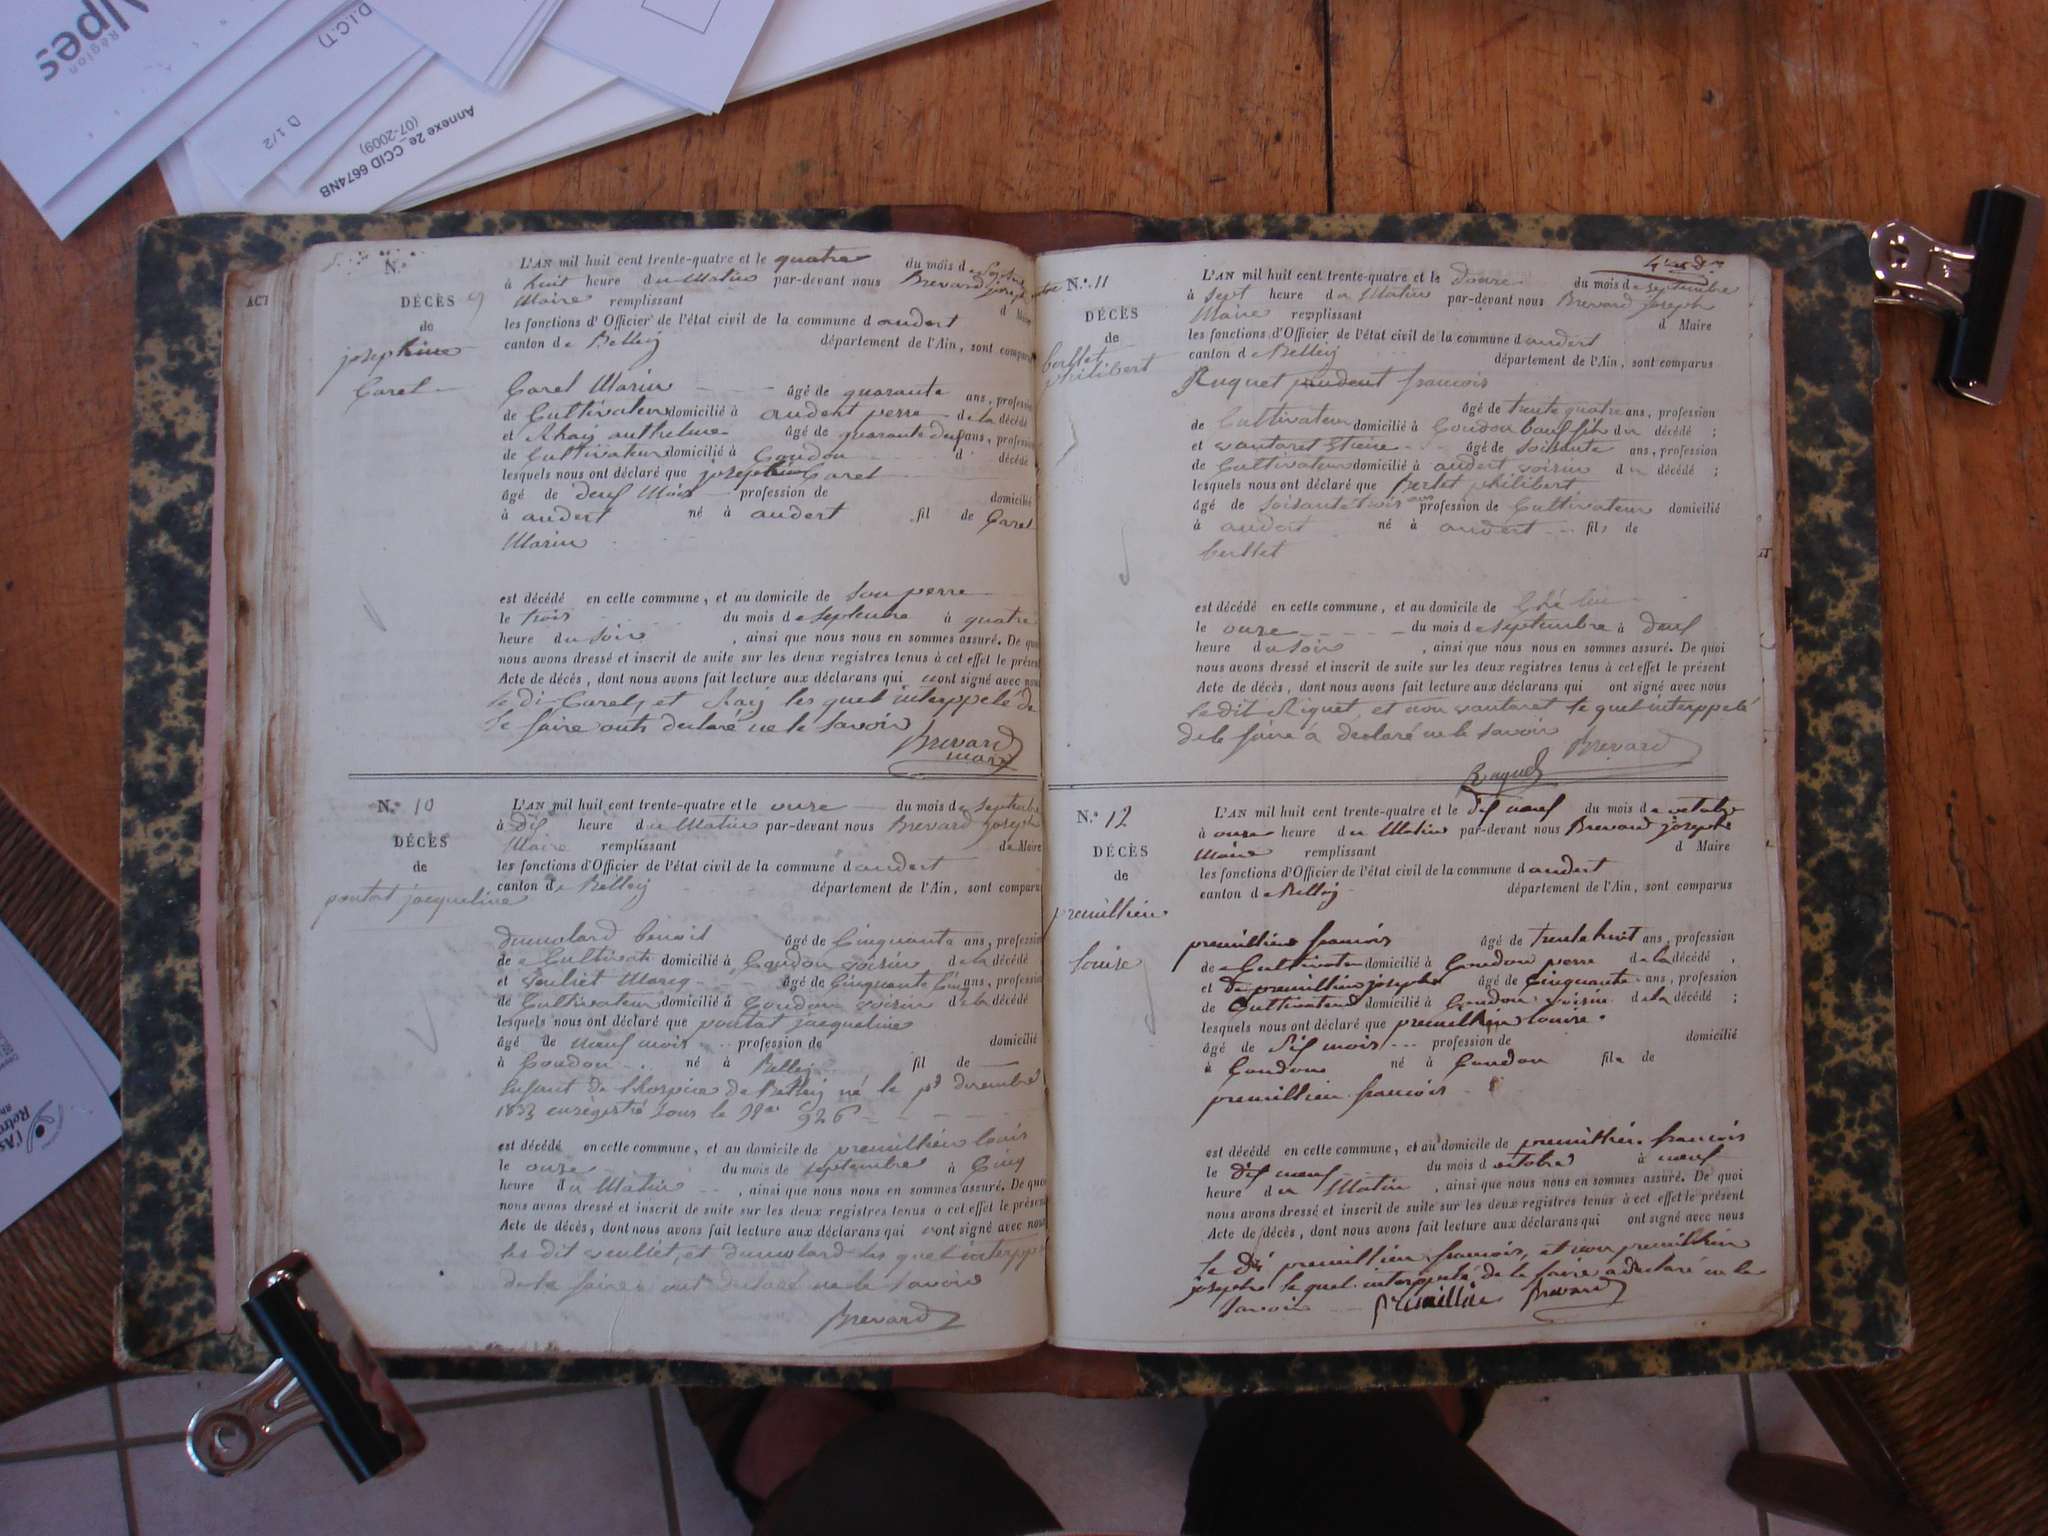 Alpes
Région
D.I.C.T)
D 1/2
Annexe 2e_CCID 6674NB
(07-2009)
ACT
N.
DÉCÈS 9
de
josephine
Carel
L'AN mil huit cent trente-quatre et le quatre du mois d
à huit heure du Matin par-devant nous Brevard joseph
Maire remplissant d Maire
les fonctions d'Officier de l'état civil de la commune d andert
canton de Belley département de l'Ain, sont comparus
Carel Marin âgé de quarante ans, profession
de Cultivateur domicilié à andert perre de la décédé
et Rhaij anthelme âgé de quarante deuf ans, profession
de Cultivateur domicilié à Condon d décédé
lesquels nous ont déclaré que josephine Carel
âgé de deuf Mois profession de domicilié
à andert né à andert fil de Carel
Marin
est décédé en cette commune, et au domicile de son perre
le trois du mois de septembre à quatre
heure du soir, ainsi que nous nous en sommes assuré. De quoi
nous avons dressé et inscrit de suite sur les deux registres tenus à cet effet le présent
Acte de décés, dont nous avons fait lecture aux déclarans qui nont signé avec nous
le di Carel, et Raij les quel interppelé de
le faire onts declaré ne le savoir
Brevard
maire
N.° 10
DÉCÈS
de
pontat jacqueline
L'AN mil huit cent trente-quatre et le onze du mois de septembre
à dif heure du Matin par-devant nous Brevard joseph
Maire remplissant de Maire
les fonctions d'Officier de l'état civil de la commune d andert
canton de Belley département de l'Ain, sont comparus
Dumolard benoit âgé de Cinquante ans, profession
de Cultivateur domicilié à Condon voisin de la décédé
et Veuliet Marcq âgé de Cinquante Cinq ans, profession
de Cultivateur domicilié à Condon voisin de la décédé
lesquels nous ont déclaré que pontat jacqueline
âgé de neuf mois profession de domicilié
à Condon né à Belley fil de
Enfant de lhospice de Belley né le pr decembre
1833 enregistré sous le N° 926
est décédé en cette commune, et au domicile de premillieu louis
le onze du mois de septembre à Cinq
heure du Matin, ainsi que nous nous en sommes assuré. De quoi
nous avons dressé et inscrit de suite sur les deux registres tenus à cet effet le présent
Acte de décés, dont nous avons fait lecture aux déclarans qui nont signé avec nous
les dit veulliet, et dumolard les quel interppelé
de le faire ont declaré ne le savoir
Brevard
N.° 11
DÉCÈS
de
berthet
philibert
L'AN mil huit cent trente-quatre et le Douze du mois de septembre
à sept heure du Matin par-devant nous Brevard joseph
Maire remplissant d Maire
les fonctions d'Officier de l'état civil de la commune d andert
canton de Belley département de l'Ain, sont comparus
Ruquet prudent francois
âgé de trente quatre ans, profession
de Cultivateur domicilié à Condon beaufils du décédé ;
et vantaret Etiene âgé de soisante ans, profession
de Cultivateur domicilié à andert voisin du décédé ;
lesquels nous ont déclaré que bertet philibert
âgé de soisante trois ans profession de Cultivateur domicilié
à andert né à andert fils de
berthet
est décédé en cette commune, et au domicile de
le onze du mois de septembre à deuf
heure du soir, ainsi que nous nous en sommes assuré. De quoi
nous avons dressé et inscrit de suite sur les deux registres tenus à cet effet le présent
Acte de décés, dont nous avons fait lecture aux déclarans qui ont signé avec nous
le dit Riquet, et non vantaret le quel interppelé
de le faire à déclaré ne le savoir
Brevard
Ruquet
N.° 12
DÉCÈS
de
premillieu
louise
L'AN mil huit cent trente-quatre et le dif neuf du mois de octobre
à onze heure du Matin par-devant nous Brevard joseph
Maire remplissant d Maire
les fonctions d'Officier de l'état civil de la commune d andert
canton de Belley département de l'Ain, sont comparus
premillieu francois âgé de trente huit ans, profession
de Cultivateur domicilié à Condon perre de la décédé ,
et de premillieu joseph âgé de Cinquante ans, profession
de Cultivateur domicilié à Condon voisin de la décédé ;
lesquels nous ont déclaré que premillieu louise.
âgé de dif mois profession de domicilié
à Condon né à Condon file de
premillieu francois
est décédé en cette commune, et au domicile de premillieu francois
le dif neuf du mois d octobre à neuf
heure du Matin, ainsi que nous nous en sommes assuré. De quoi
nous avons dressé et inscrit de suite sur les deux registres tenus à cet effet le présent
Acte de décés, dont nous avons fait lecture aux déclarans qui ont signé avec nous
le dit premillieu francois, et non premillieu
joseph le quel interppelé de le faire a declaré ne le
savoir premillieu Brevard